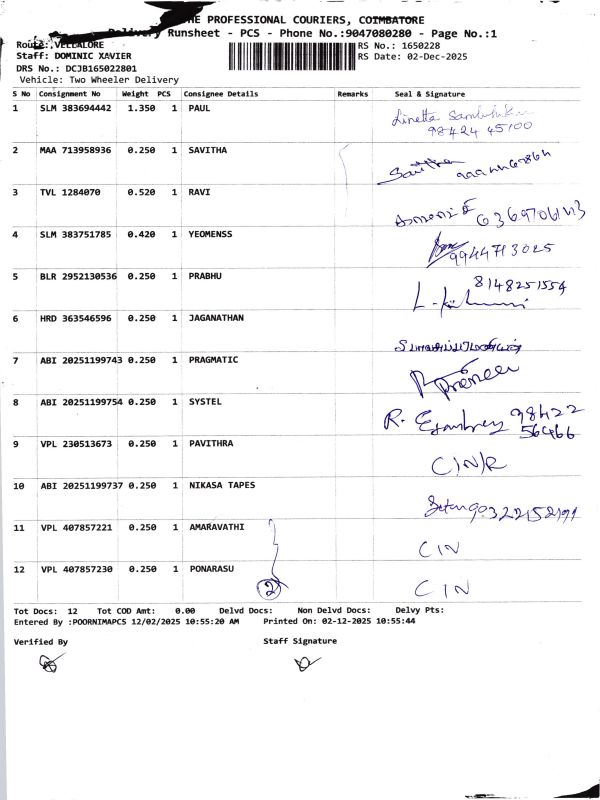 THE PROFESSIONAL COURIERS, COIMBATORE
Delivery Runsheet - PCS - Phone No.:9047080280 - Page No.:1
Route: VELLALORE
RS No.: 1650228
Staff: DOMINIC XAVIER
RS Date: 02-Dec-2025
DRS No.: DCJB165022801
Vehicle: Two Wheeler Delivery
S No Consignment No Weight PCS Consignee Details Remarks Seal & Signature
1 SLM 383694442 1.350 1 PAUL
98424 45100
2 MAA 713958936 0.250 1 SAVITHA
Savitha
3 TVL 1284070 0.520 1 RAVI
4 SLM 383751785 0.420 1 YEOMENSS
9944713025
5 BLR 2952130536 0.250 1 PRABHU
8148251554
6 HRD 363546596 0.250 1 JAGANATHAN
7 ABI 20251199743 0.250 1 PRAGMATIC
8 ABI 20251199754 0.250 1 SYSTEL
R. 98422
56466
9 VPL 230513673 0.250 1 PAVITHRA
C/N/R
10 ABI 20251199737 0.250 1 NIKASA TAPES
11 VPL 407857221 0.250 1 AMARAVATHI
CIN
12 VPL 407857230 0.250 1 PONARASU
2
CIN
Tot Docs: 12 Tot COD Amt: 0.00 Delvd Docs: Non Delvd Docs: Delvy Pts:
Entered By :POORNIMAPCS 12/02/2025 10:55:20 AM Printed On: 02-12-2025 10:55:44
Verified By Staff Signature